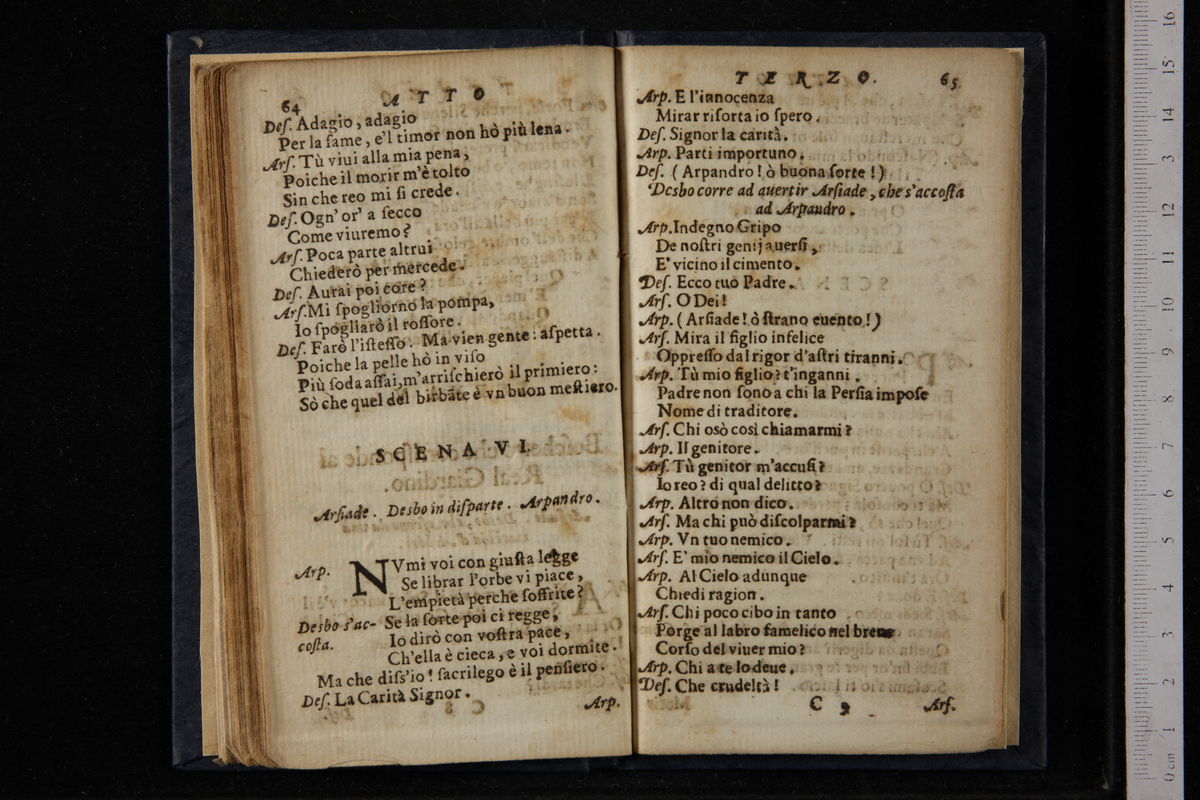 64 ATTO
Des. Adagio, adagio
Per la fame, e'l timor non hò più lena.
Ars. Tù viui alla mia pena,
Poiche il morir m'è tolto
Sin che reo mi si crede.
Des. Ogn' or' a secco
Come viuremo?
Ars. Poca parte altrui
Chiederò per mercede.
Des. Aurai poi core?
Ars. Mi spogliorno la pompa,
Io spogliarò il rossore.
Des. Farò l'istesso. Ma vien gente: aspetta.
Poiche la pelle hò in viso
Più soda assai, m'arrischierò il primiero:
Sò che quel del birbate è vn buon mestiero.
SCENA VI.
Arsiade. Desbo in disparte. Arpandro.
Arp. NVmi voi con giusta legge
Se librar l'orbe vi piace,
L'empietà perche soffrite?
Desbo s'ac- Se la sorte poi ci regge,
costa. Io dirò con vostra pace,
Ch'ella è cieca, e voi dormite.
Ma che diss'io! sacrilego è il pensiero.
Des. La Carità Signor.
Arp.
TERZO. 65
Arp. E l'innocenza
Mirar risorta io spero.
Des. Signor la carità.
Arp. Parti importuno.
Des. (Arpandro! ò buona sorte!)
Desbo corre ad auertir Arsiade, che s'accosta
ad Arpandro.
Arp. Indegno Gripo
De nostri genij auersi,
E' vicino il cimento.
Des. Ecco tuo Padre.
Ars. O Dei!
Arp. (Arsiade! ò strano euento!)
Ars. Mira il figlio infelice
Oppresso dal rigor d'astri tiranni.
Arp. Tù mio figlio? t'inganni.
Padre non sono a chi la Persia impose
Nome di traditore.
Ars. Chi osò così chiamarmi?
Arp. Il genitore.
Ars. Tù genitor m'accusi?
Io reo? di qual delitto?
Arp. Altro non dico.
Ars. Ma chi può discolparmi?
Arp. Vn tuo nemico.
Ars. E' mio nemico il Cielo.
Arp. Al Cielo adunque
Chiedi ragion.
Ars. Chi poco cibo in tanto
Porge al labro famelico nel breue
Corso del viuer mio?
Arp. Chi a te lo deue.
Des. Che crudeltà!
C Ars.
0 cm 1 2 3 4 5 6 7 8 9 10 11 12 13 14 15 16